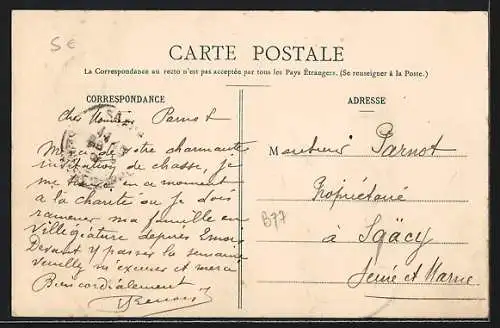 5€
CARTE POSTALE
La Correspondance au recto n'est pas acceptée par tous les Pays Étrangers. (Se renseigner à la Poste.)
CORRESPONDANCE
Cher Monsieur Parnot
Merci de votre charmante
invitation de chasse, je
me trouve en ce moment
a la charité ou je dois
ramener ma famille en
villégiature depuis 2 mois
Devant y passer la semaine
veuillez m'excuser et merci
Bien cordialement
ADRESSE
Monsieur Parnot
Propriétaire
B77
à Sâacy
Seine et Marne